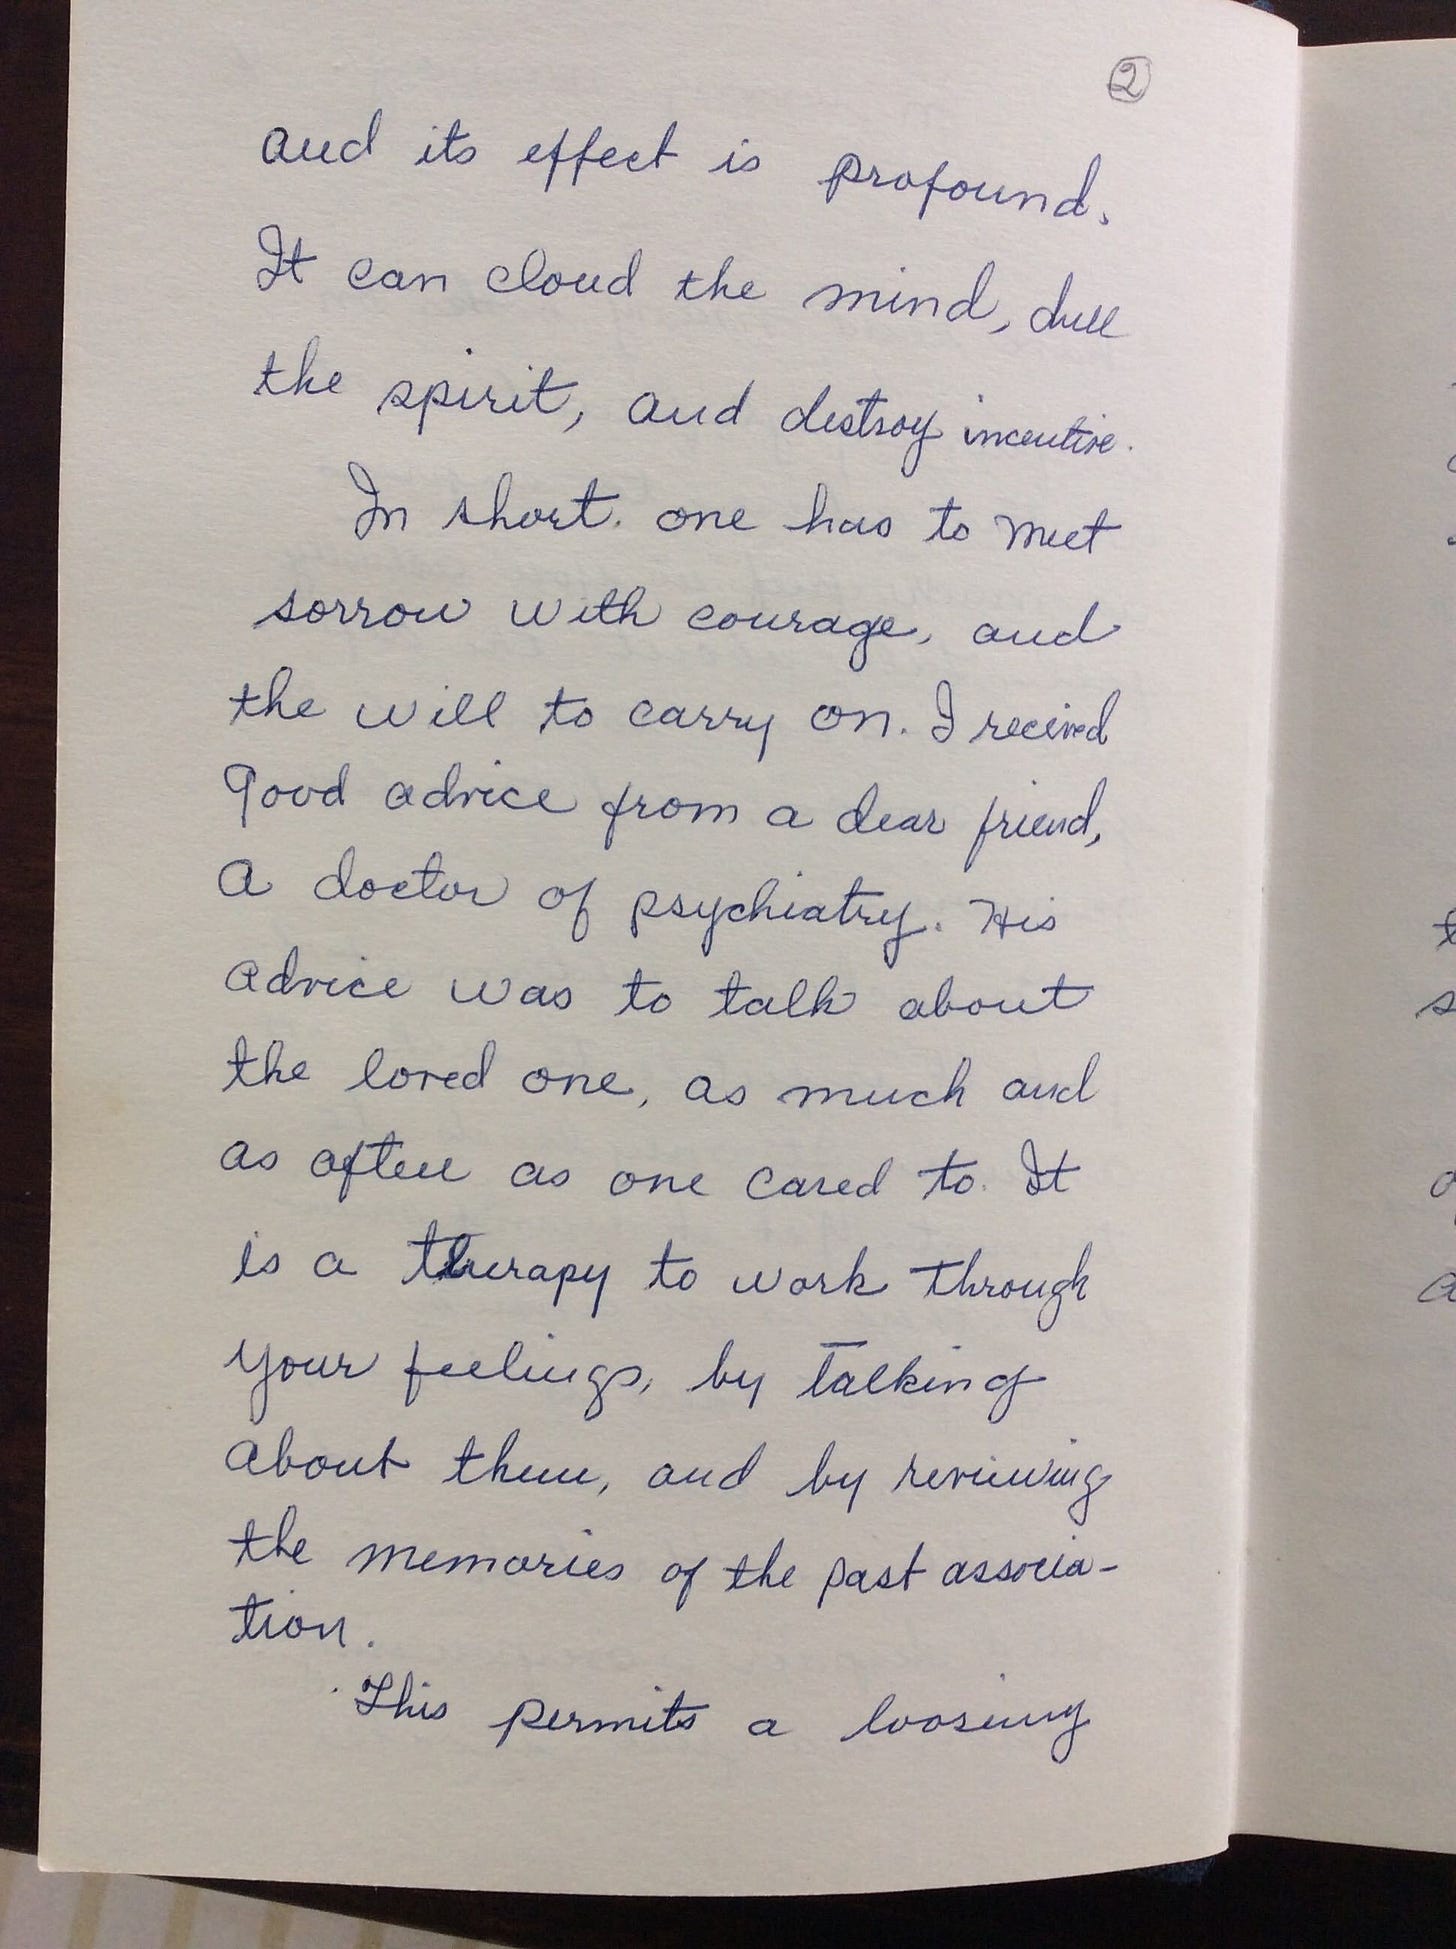 2
and its effect is profound.
It can cloud the mind, dull
the spirit, and destroy incentive.
In short. one has to meet
sorrow with courage, and
the will to carry on. I recived
good advice from a dear friend,
a doctor of psychiatry. His
advice was to talk about
the loved one, as much and
as often as one cared to. It
is a therapy to work through
your feelings, by talking
about them, and by reviewing
the memories of the past associa-
tion.
This permits a loosing